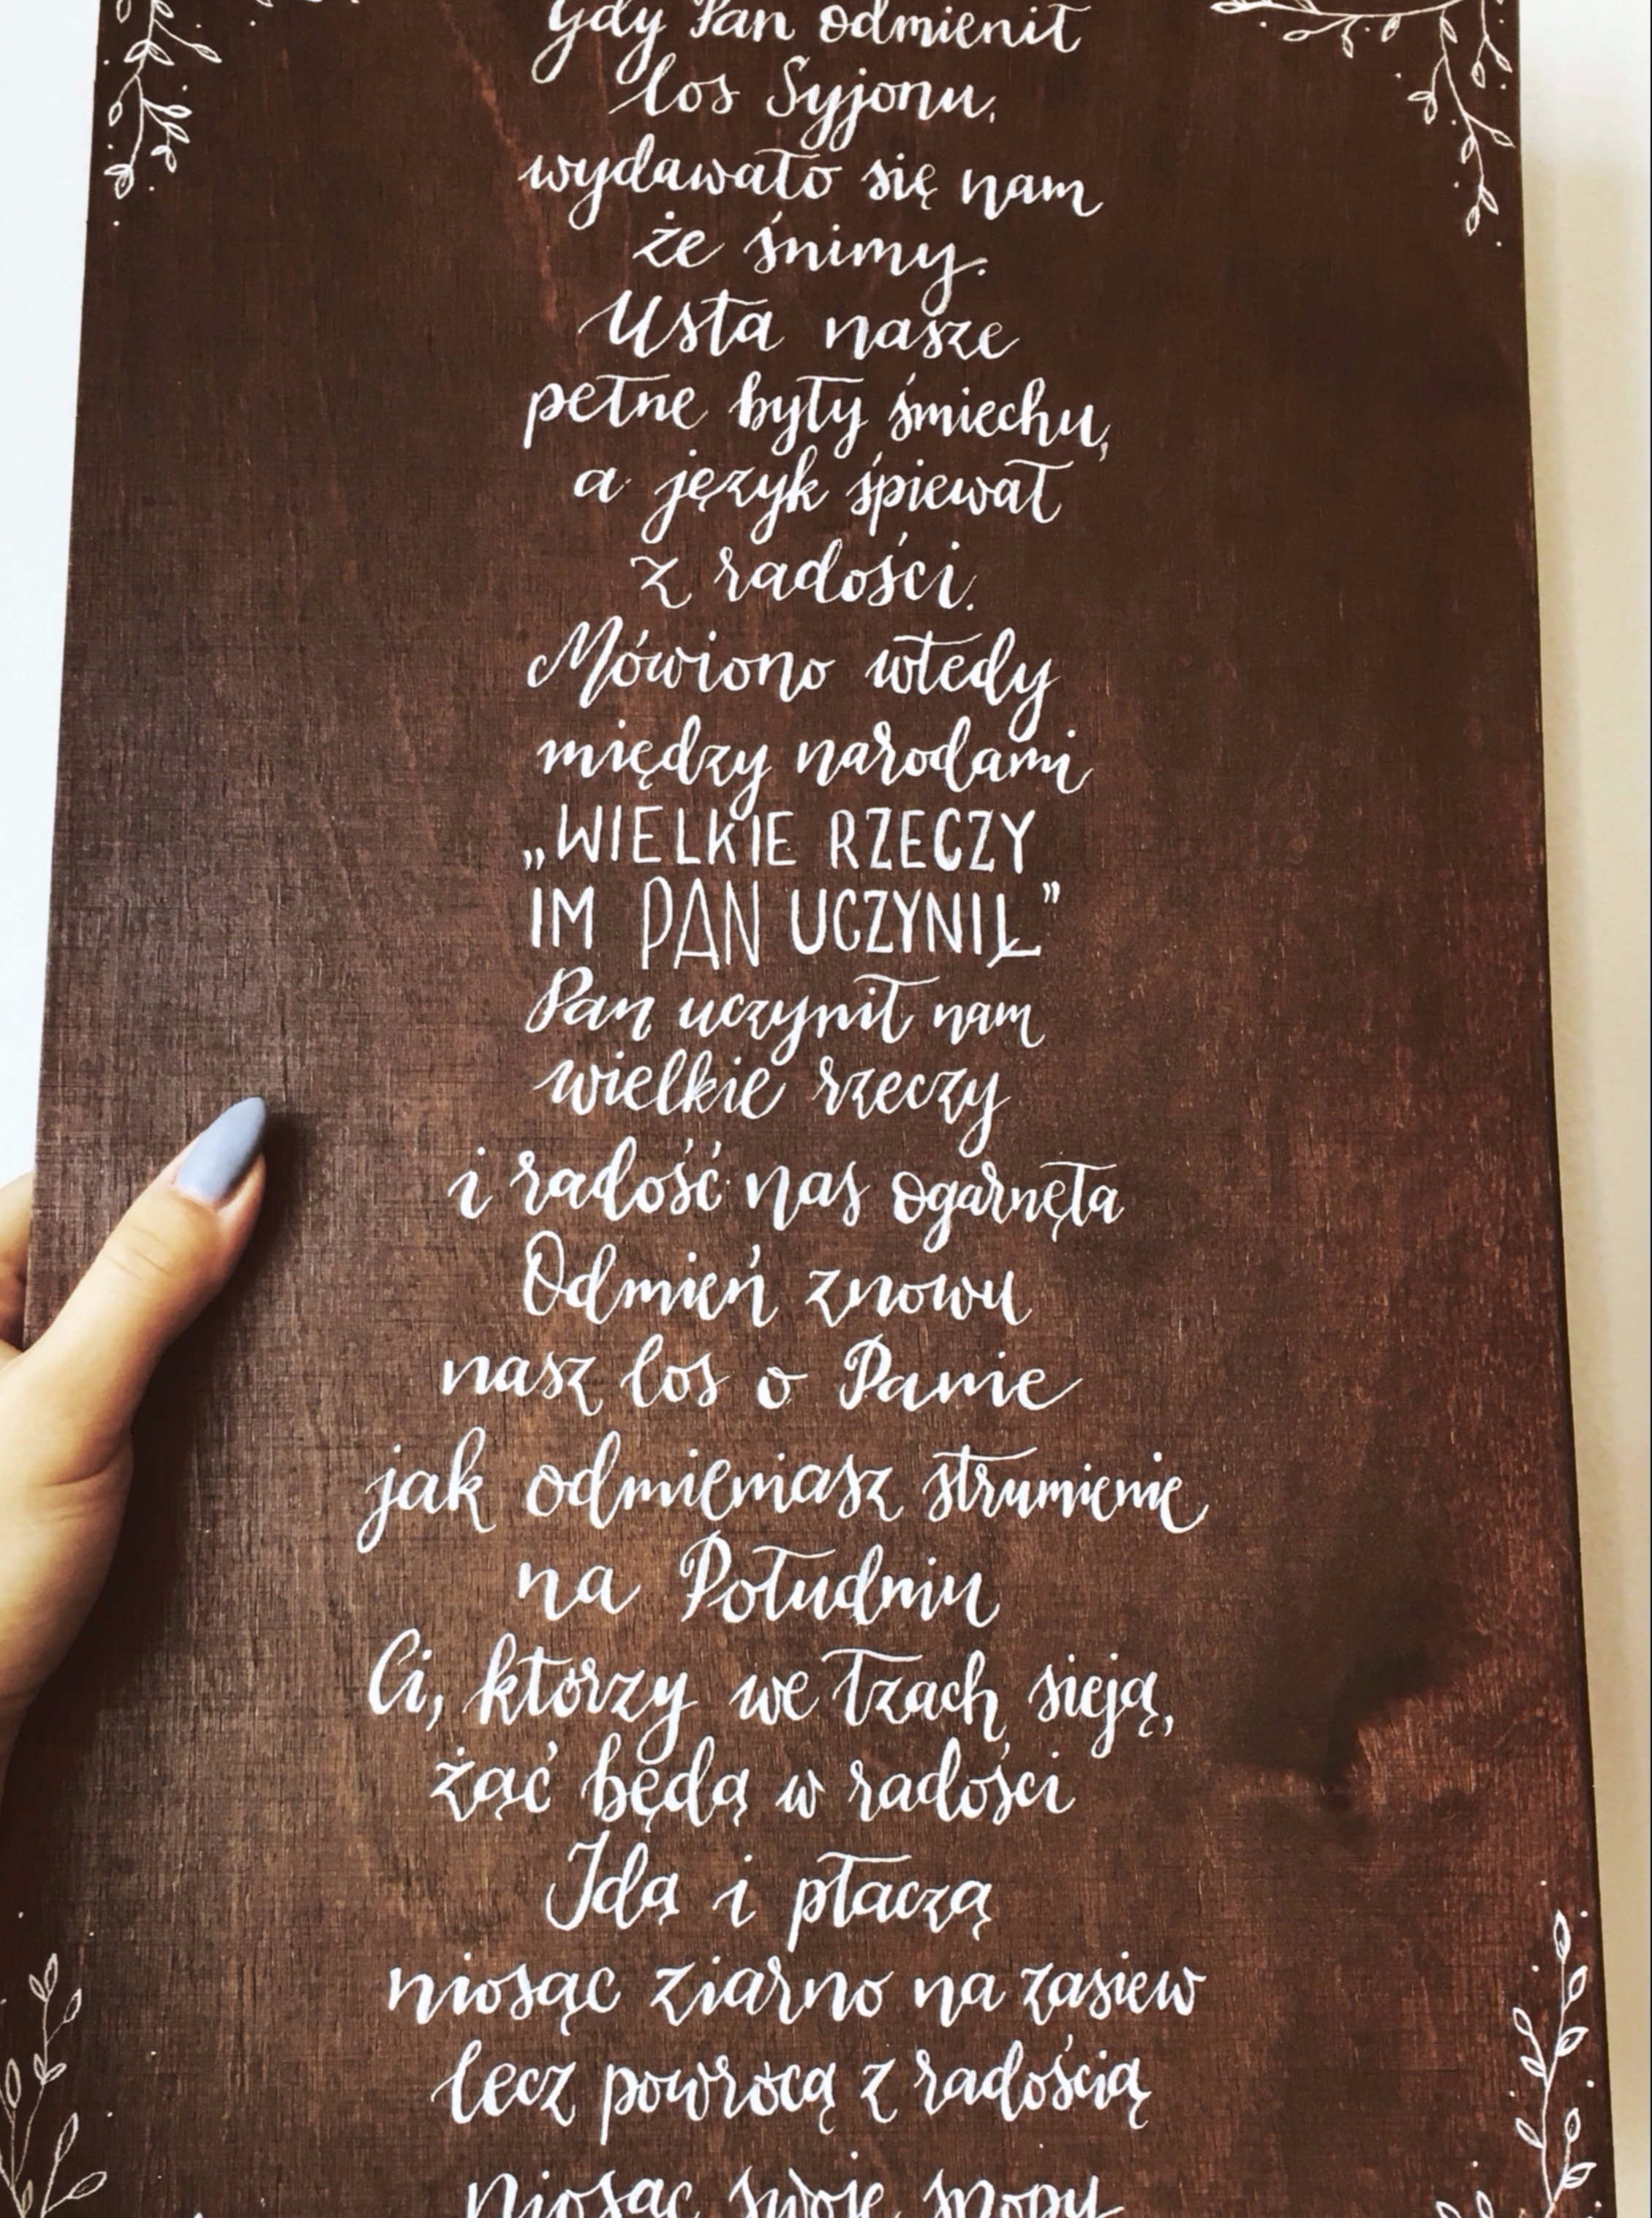 Gdy Pan odmienił
los Syjonu,
wydawało się nam
że śnimy.
Usta nasze
pełne były śmiechu,
a język śpiewał
z radości.
Mówiono wtedy
między narodami
„WIELKIE RZECZY
IM PAN UCZYNIŁ”
Pan uczynił nam
wielkie rzeczy
i radość nas ogarnęła
Odmień znowu
nasz los o Panie
jak odmieniasz strumienie
na Południu
Ci, którzy we łzach sieją,
żąć będą w radości
Idą i płaczą
niosąc ziarno na zasiew
lecz powrócą z radością
niosąc swoje snopy